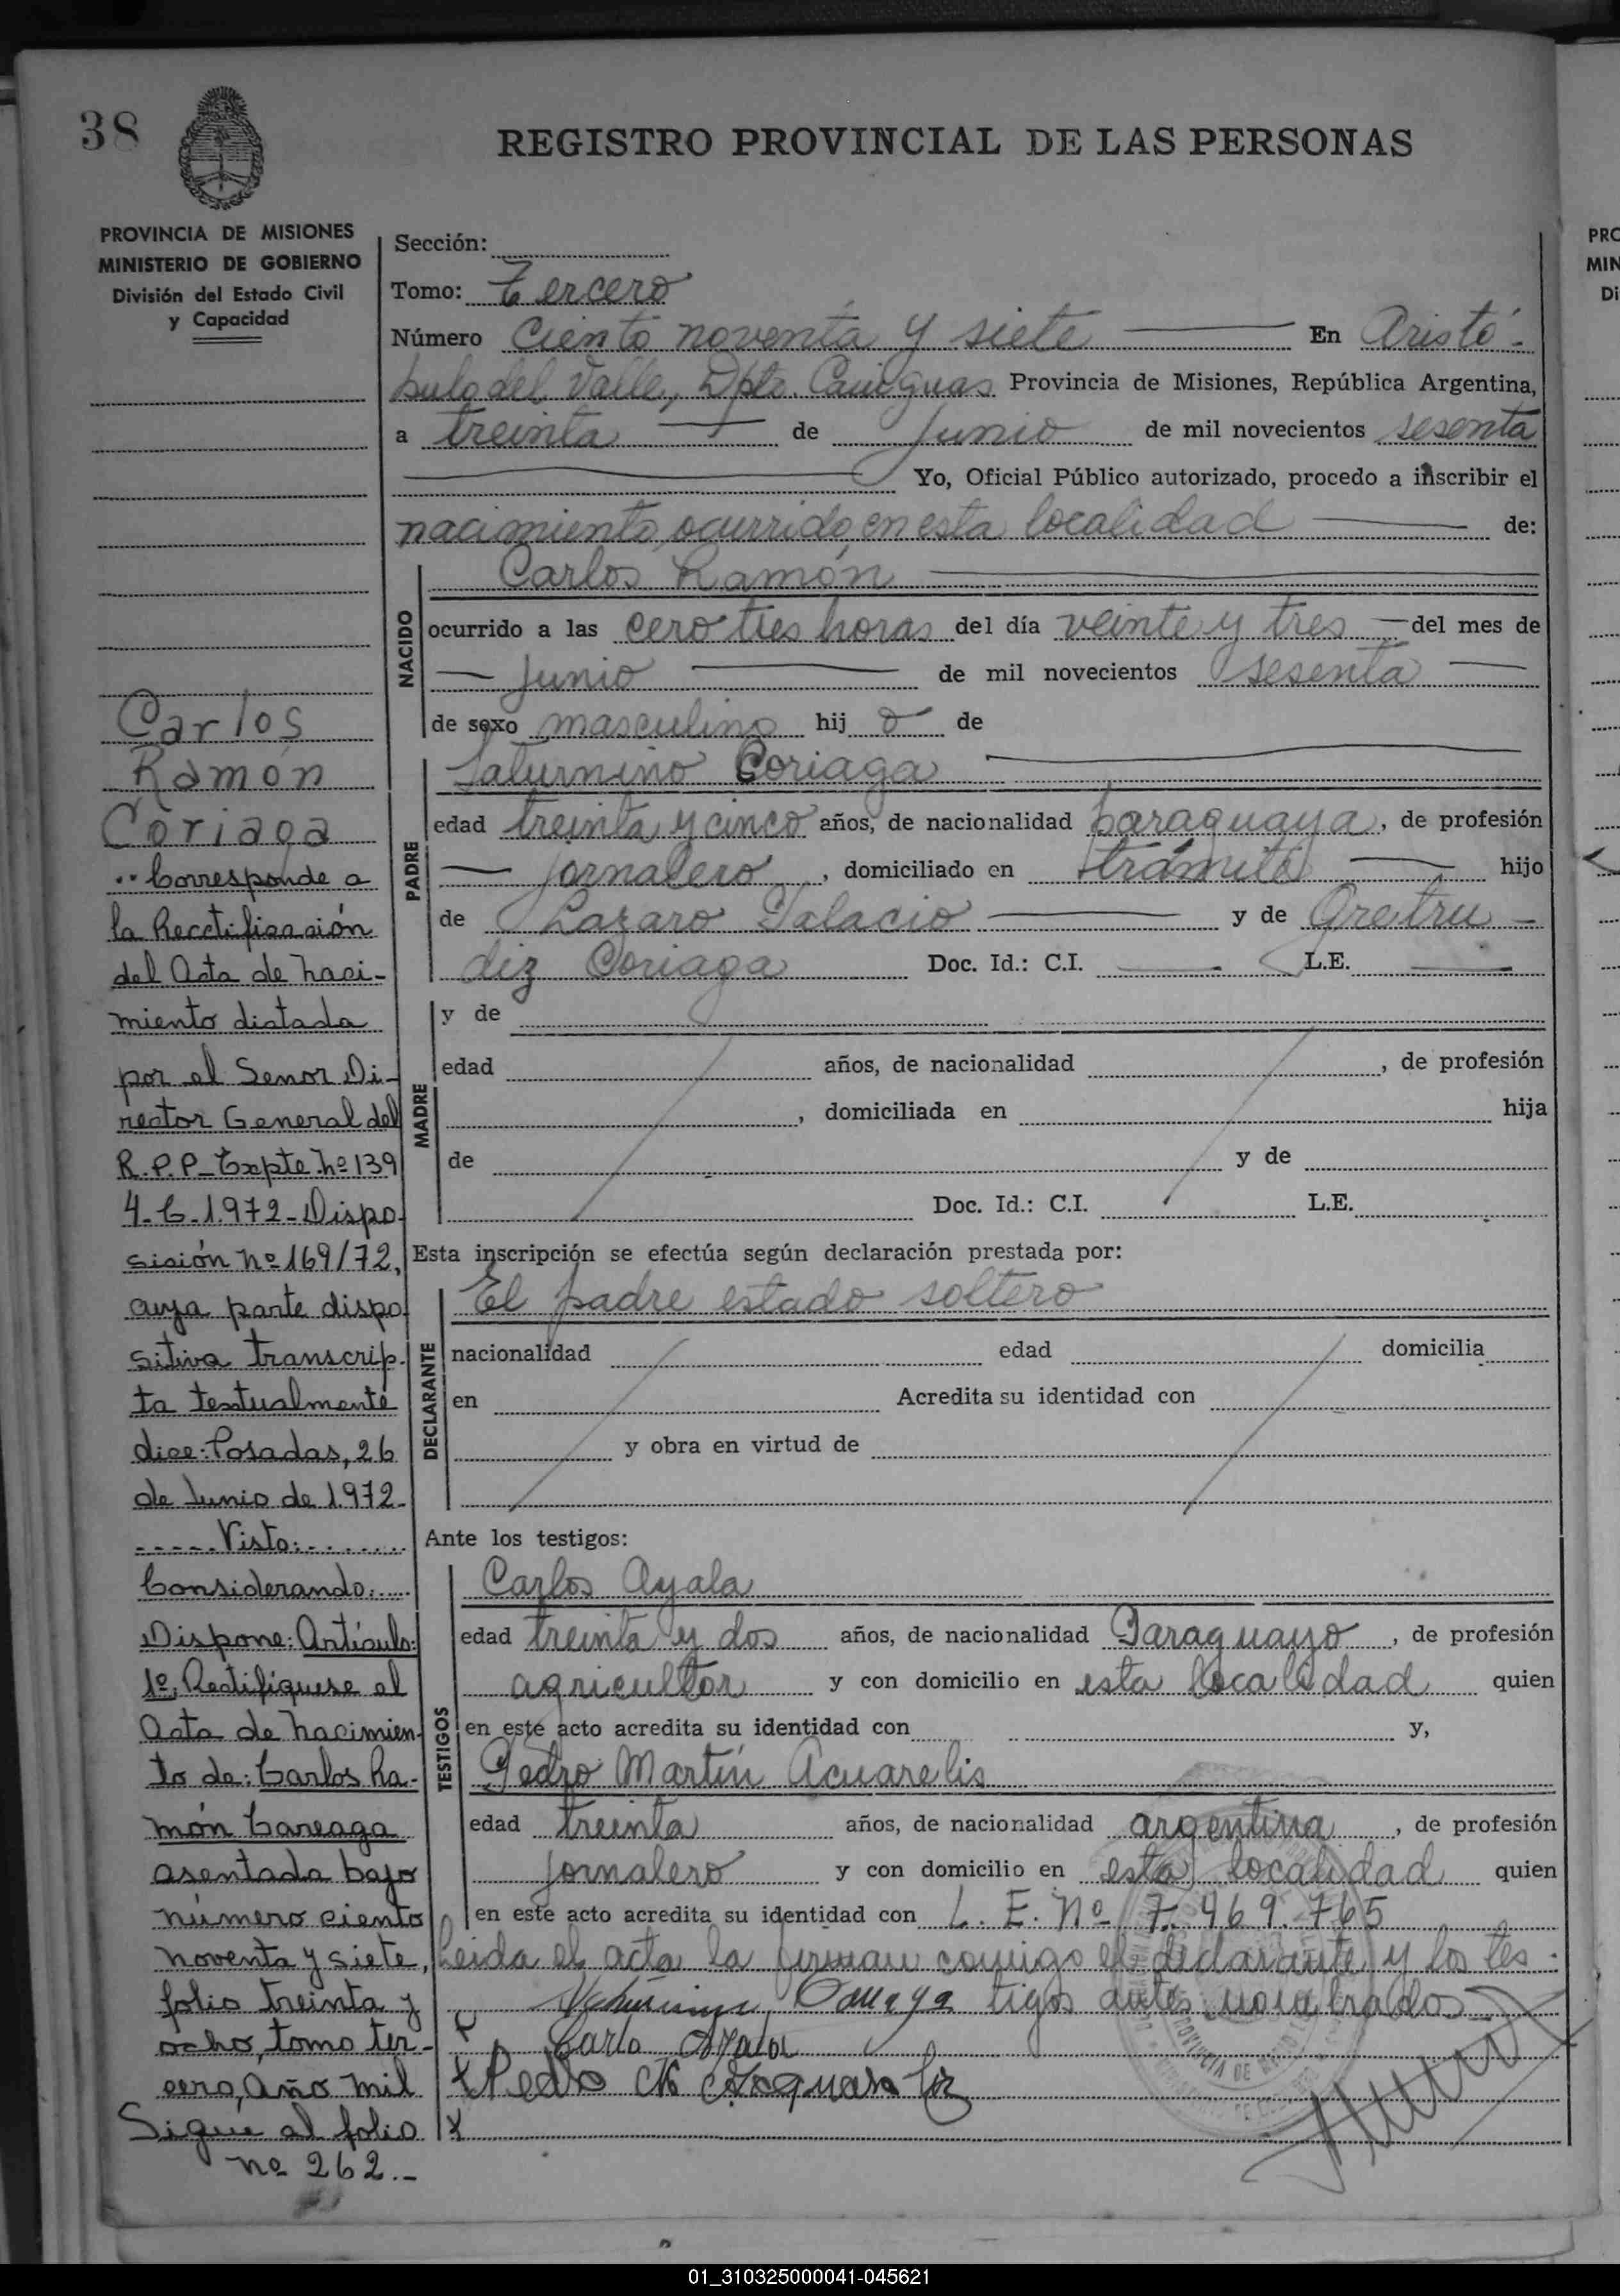 38
REGISTRO PROVINCIAL DE LAS PERSONAS
PROVINCIA DE MISIONES
MINISTERIO DE GOBIERNO
División del Estado Civil
y Capacidad
Carlos
Ramón
Coriaga
Corresponde a
la Recctificasión
del Acta de Naci-
miento dictada
por el Senor Di-
rector General del
R.P.P-Expte.Nº139
4-C-1.972-Dispo-
sisión Nº169/72,
cuya parte dispo
sitiva transcrip-
ta textualmente
dice: Posadas, 26
de Junio de 1.972-
-----Visto:.......
Considerando:.....
Dispone: Artículo:
1º, Rectifíquese el
Acta de Nacimien-
to de: Carlos Ra-
món Careaga
asentada bajo
número ciento
noventa y siete,
folio treinta y
ocho, tomo ter-
cero, Año mil
Sigue al folio
Nº 262.-
Sección:
Tomo: Tercero
Número Ciento noventa y siete En Aristó-
bulo del Valle, Dpto. Cainguas Provincia de Misiones, República Argentina,
a treinta de Junio de mil novecientos sesenta
Yo, Oficial Público autorizado, procedo a inscribir el
nacimiento ocurrido en esta localidad de:
NACIDO
Carlos Ramón
ocurrido a las cero tres horas del día veinte y tres del mes de
Junio de mil novecientos sesenta
de sexo masculino hij o de
PADRE
Saturnino Coriaga
edad treinta y cinco años, de nacionalidad paraguaya, de profesión
jornalero, domiciliado en trámite hijo
de Lazaro Palacio y de Gretru-
diz Coriaga Doc. Id.: C.I. L.E.
MADRE
y de
edad años, de nacionalidad , de profesión
, domiciliada en hija
de y de
Doc. Id.: C.I. L.E.
Esta inscripción se efectúa según declaración prestada por:
DECLARANTE
El padre estado soltero
nacionalidad edad domicilia
en Acredita su identidad con
y obra en virtud de
Ante los testigos:
TESTIGOS
Carlos Ayala
edad treinta y dos años, de nacionalidad Paraguayo, de profesión
agricultor y con domicilio en esta localidad quien
en este acto acredita su identidad con y,
Pedro Martín Acuarelis
edad treinta años, de nacionalidad argentina, de profesión
jornalero y con domicilio en esta localidad quien
en este acto acredita su identidad con L. E. Nº 7.469.765
Leida el acta la firman conmigo el declarante y los tes-
tigos antes nombrados
Carlo Ayala
Pedro
PRO
MIN
Di
01_310325000041-045621